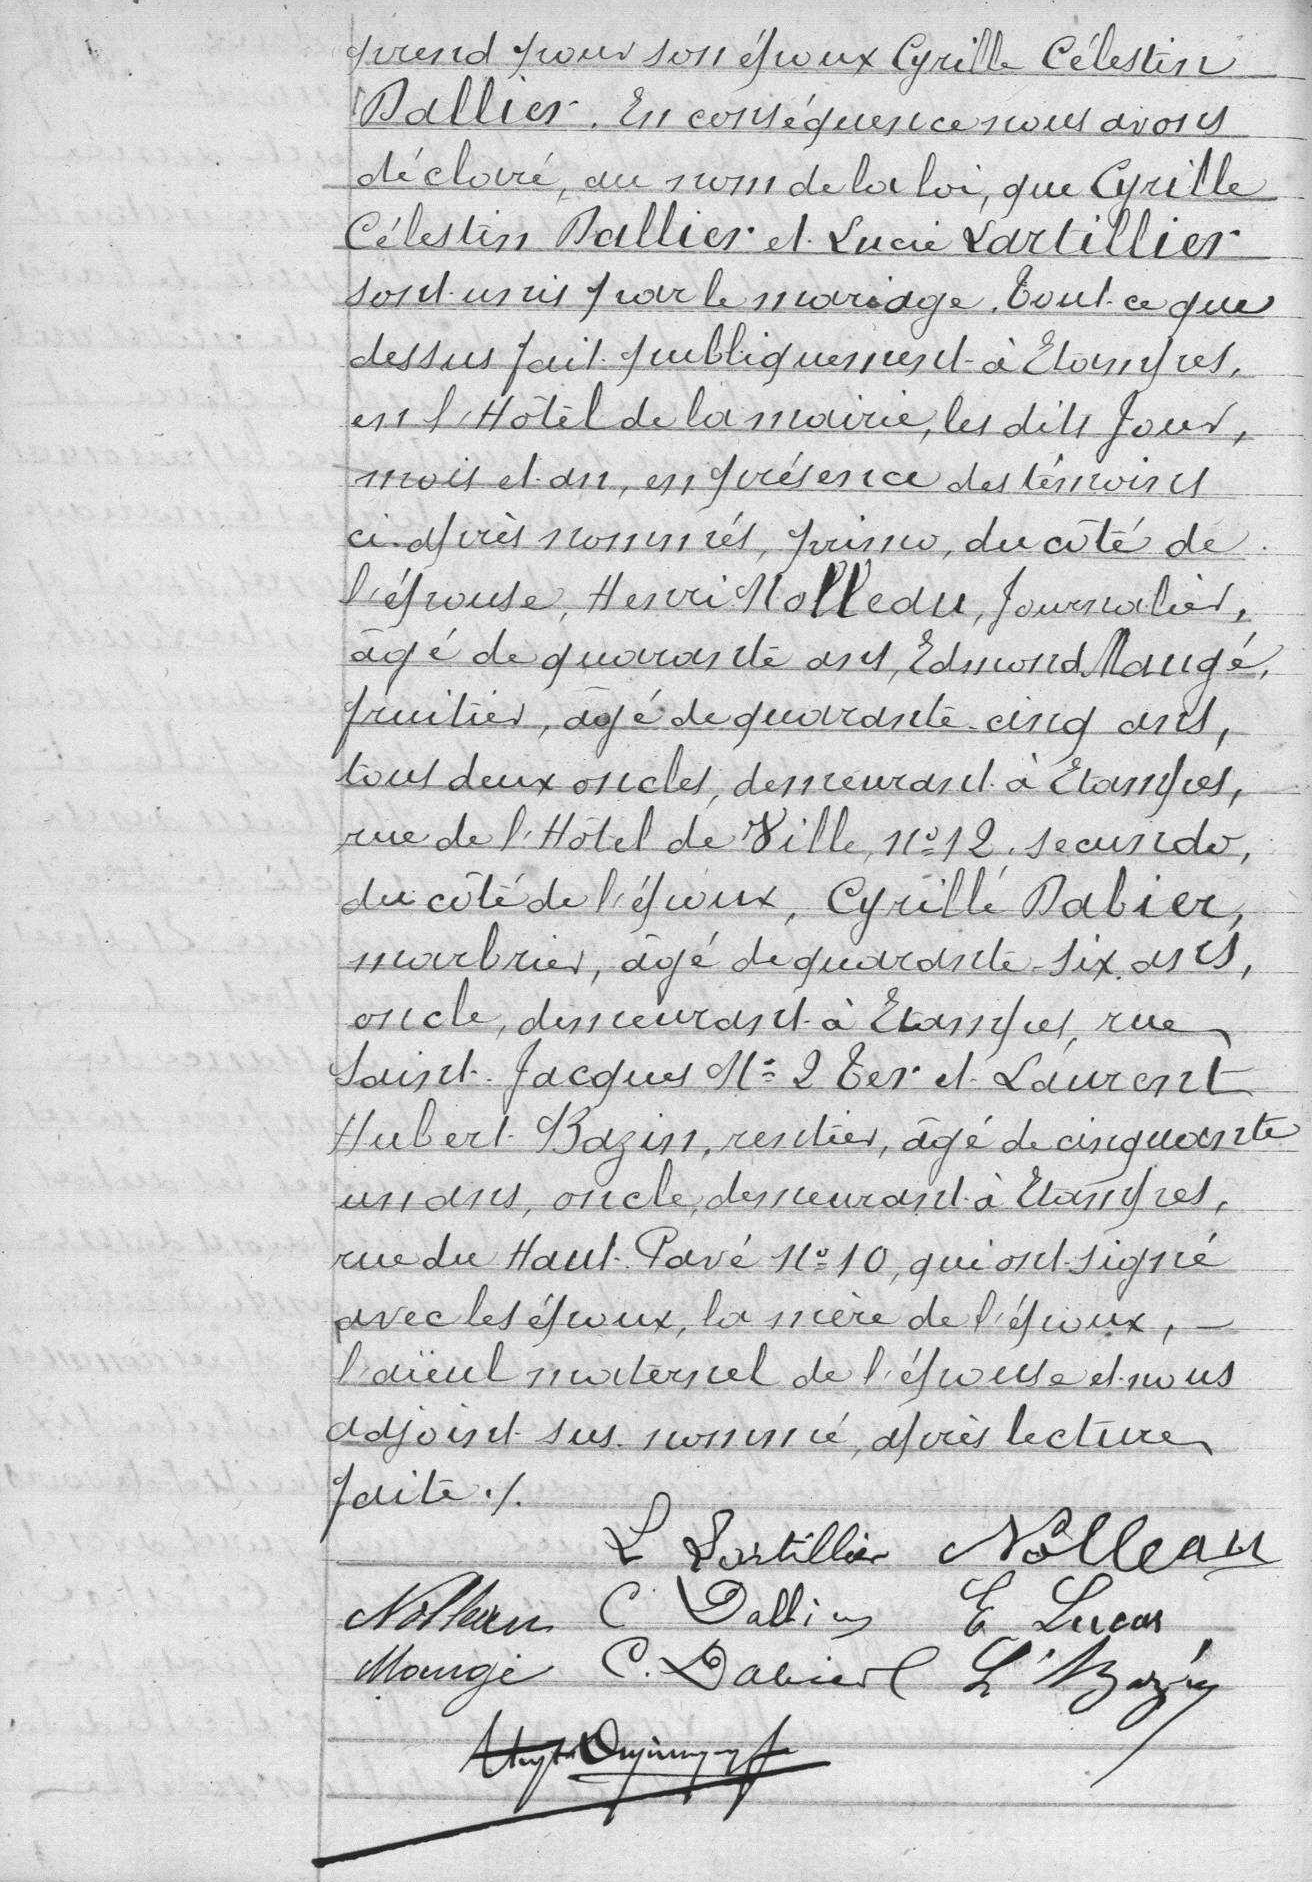 prend pour son époux Cyrille Célestin
Dallier. En conséquence nous avons
déclaré, au nom de la loi, que Cyrille
Célestin Dallier et Lucie Lartillier
sont unis par le mariage. Tout ce que
dessus fait publiquement à Etampes,
en l'Hôtel de la mairie, les dits jour,
mois et an, en présence des témoins
ci-après nommés, primo, du côté de
l'épouse, Henri Nolleau, journalier,
âgé de quarante ans, Edmond Maugé,
fruitier, âgé de quarante-cinq ans,
tous deux oncles, demeurant à Etampes,
rue de l'Hôtel de Ville, N° 12. secundo,
du côté de l'époux, Cyrille Dabier,
marbrier, âgé de quarante-six ans,
oncle, demeurant à Etampes, rue
Saint-Jacques N° 2 Ter et Laurent
Hubert Bazin, rentier, âgé de cinquante
un ans, oncle, demeurant à Etampes,
rue du Haut-Pavé N° 10, qui ont signé
avec les époux, la mère de l'époux, –
l'aïeul maternel de l'épouse et nous
adjoint sus-nommé, après lecture
faite ./.
L Lartillier Nolleau
Nolleau C Dallier E Lucas
Maugé C. Dabier L Bazin